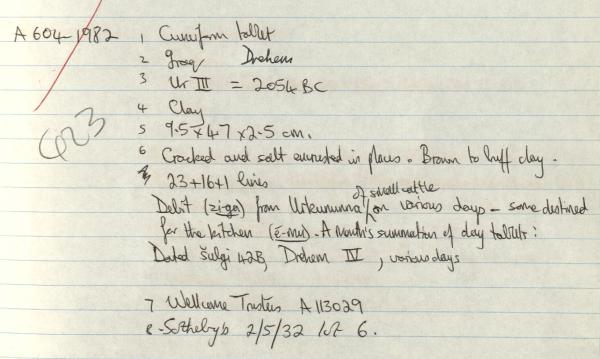 A 604-1982 1 Cuneiform tablet
2 Iraq Drehem
3 Ur III = 2054 BC
4 Clay
623
5 9.5 x 4.7 x 2.5 cm.
6 Cracked and salt encrusted in places. Brown to buff clay.
23+16+1 lines
of small cattle
Debit (zi-ga) from Urkununna / on various days - some destined
for the kitchen (é-mu). A month's summation of day tablets:
Dated Šulgi 42B, Drehem IV, various days
7 Wellcome Trustees A 113029
8 - Sotheby's 2/5/32 lot 6.